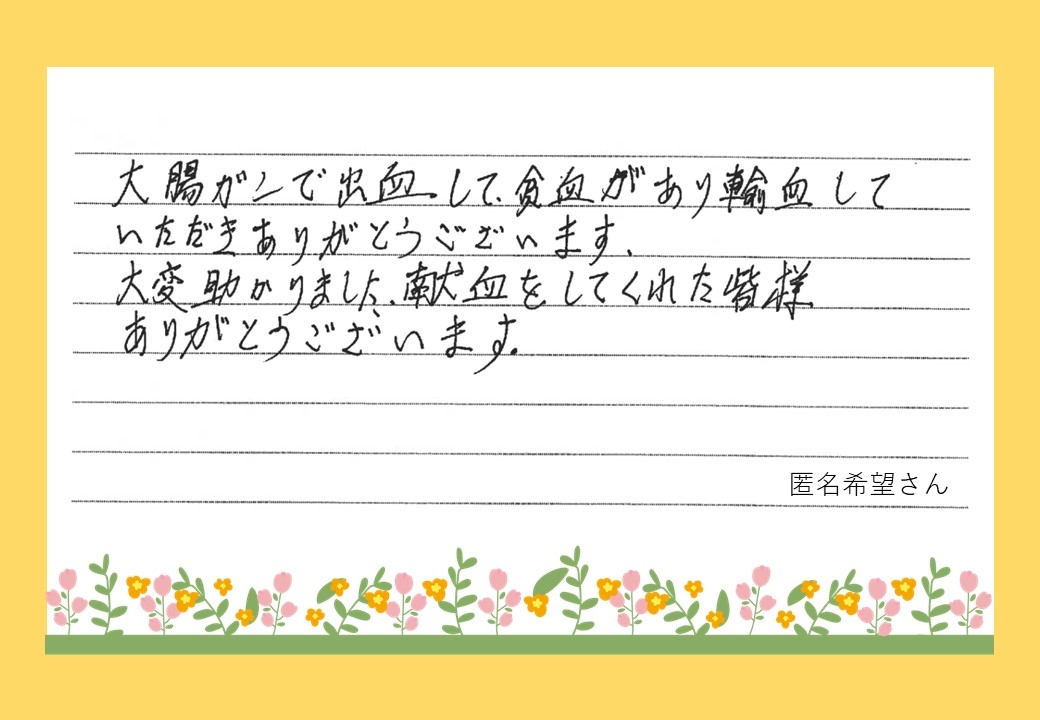 大腸ガンで出血して、貧血があり輸血して
いただきありがとうございます、
大変助かりました、献血をしてくれた皆様
ありがとうございます。
匿名希望さん